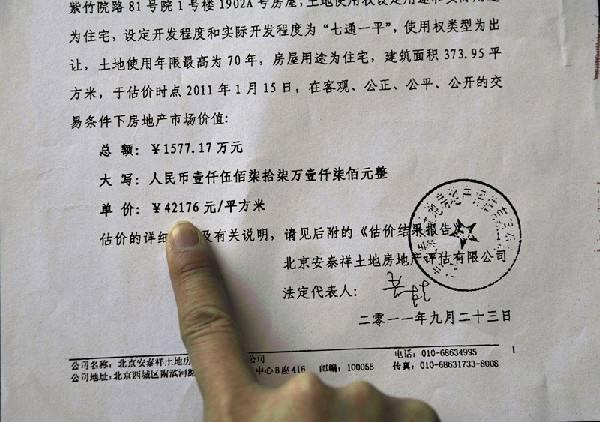 紫竹院路 81 号院 1 号楼 1902A 号房屋，土地使用权设定用途和实际用途
为住宅，设定开发程度和实际开发程度为“七通一平”，使用权类型为出
让，土地使用年限最高为 70 年，房屋用途为住宅，建筑面积 373.95 平
方米，于估价时点 2011 年 1 月 15 日，在客观、公正、公平、公开的交
易条件下房地产市场价值：
总 额：￥1577.17 万元
大 写：人民币壹仟伍佰柒拾柒万壹仟柒佰元整
单 价：￥42176 元/平方米
估价的详细 及有关说明，请见后附的《估价结果报告》
北京安泰祥土地房地产评估有限公司
法定代表人：
二零一一年九月二十三日
公司名称：北京安泰祥土地房 公司 电话：010-68634995 1
公司地址：北京西城区 中心B座416 邮编：100055 传真：010-68631733-8008